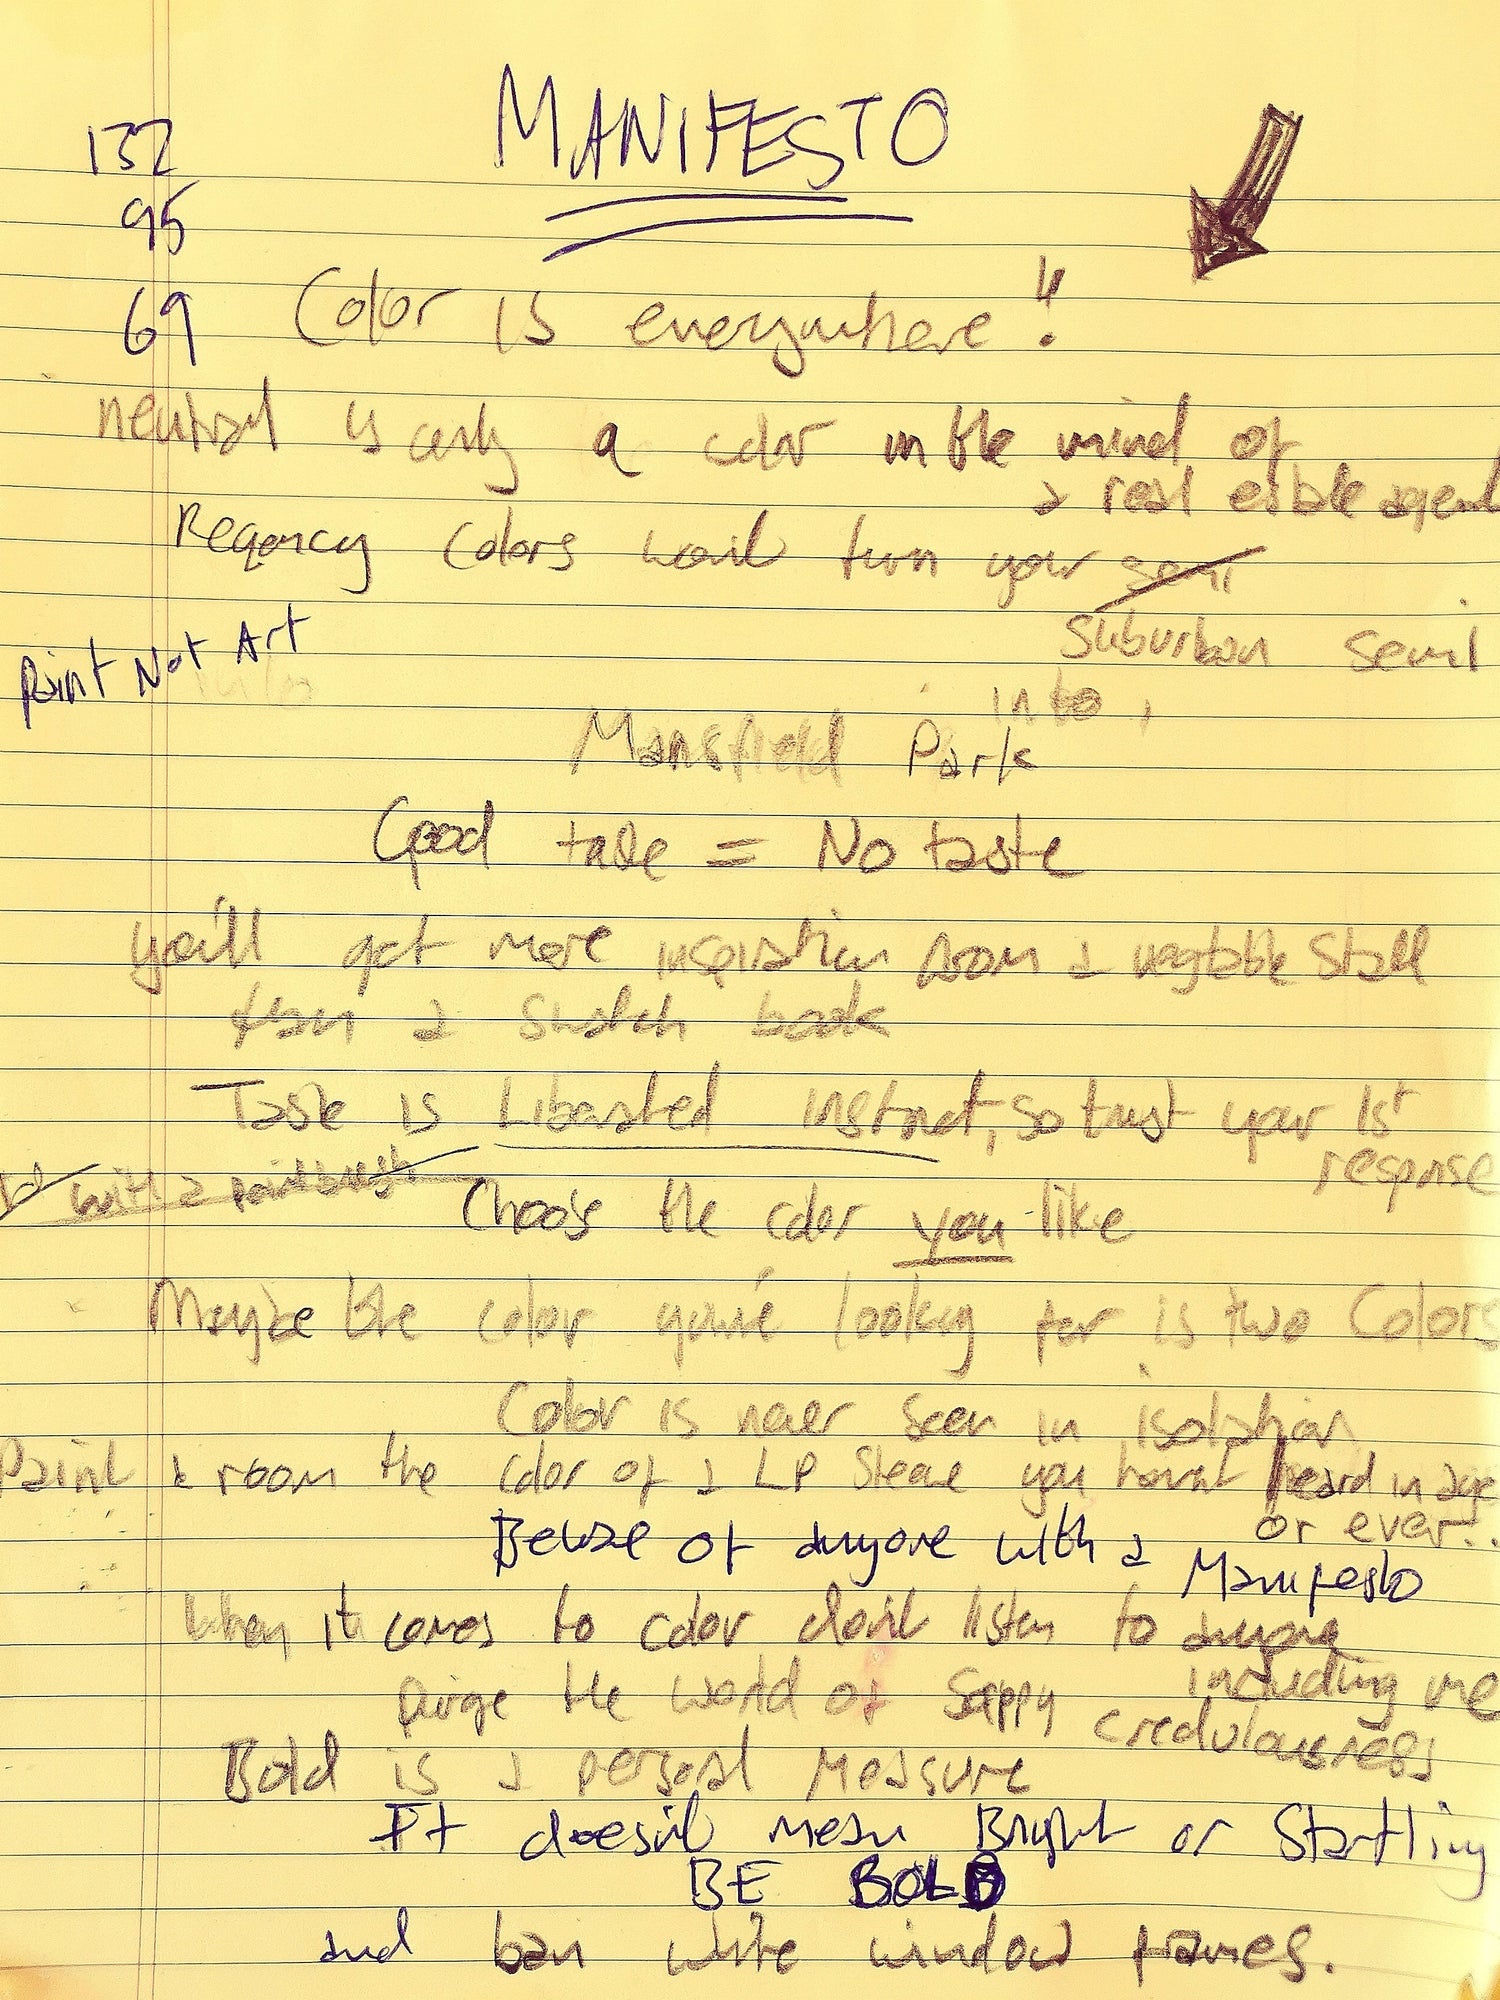 MANIFESTO
132
95
69
Color is everywhere!!
neutral is only a color in the mind of
a real estate agent
Regency Colors won't turn your semi
Suburban semi
Paint Not Art
into
Mansfield Park
Good taste = No taste
you'll get more inspiration from a vegtable Stall
than a Swatch book
Taste is Liberated instinct, so trust your 1st
response
with a paintbrush
Choose the color you like
Maybe the color you're looking for is two Colors
Color is never seen in isolation
Paint a room the color of a LP Sleeve you havnt heard in age
or ever..
Beware of anyone with a Manifesto
When it comes to color don't listen to anyone
including me
Purge the world of Sappy
credulousness
Bold is a personal measure
It doesn't mean Bright or Startling
BE BOLD
and ban white window frames.